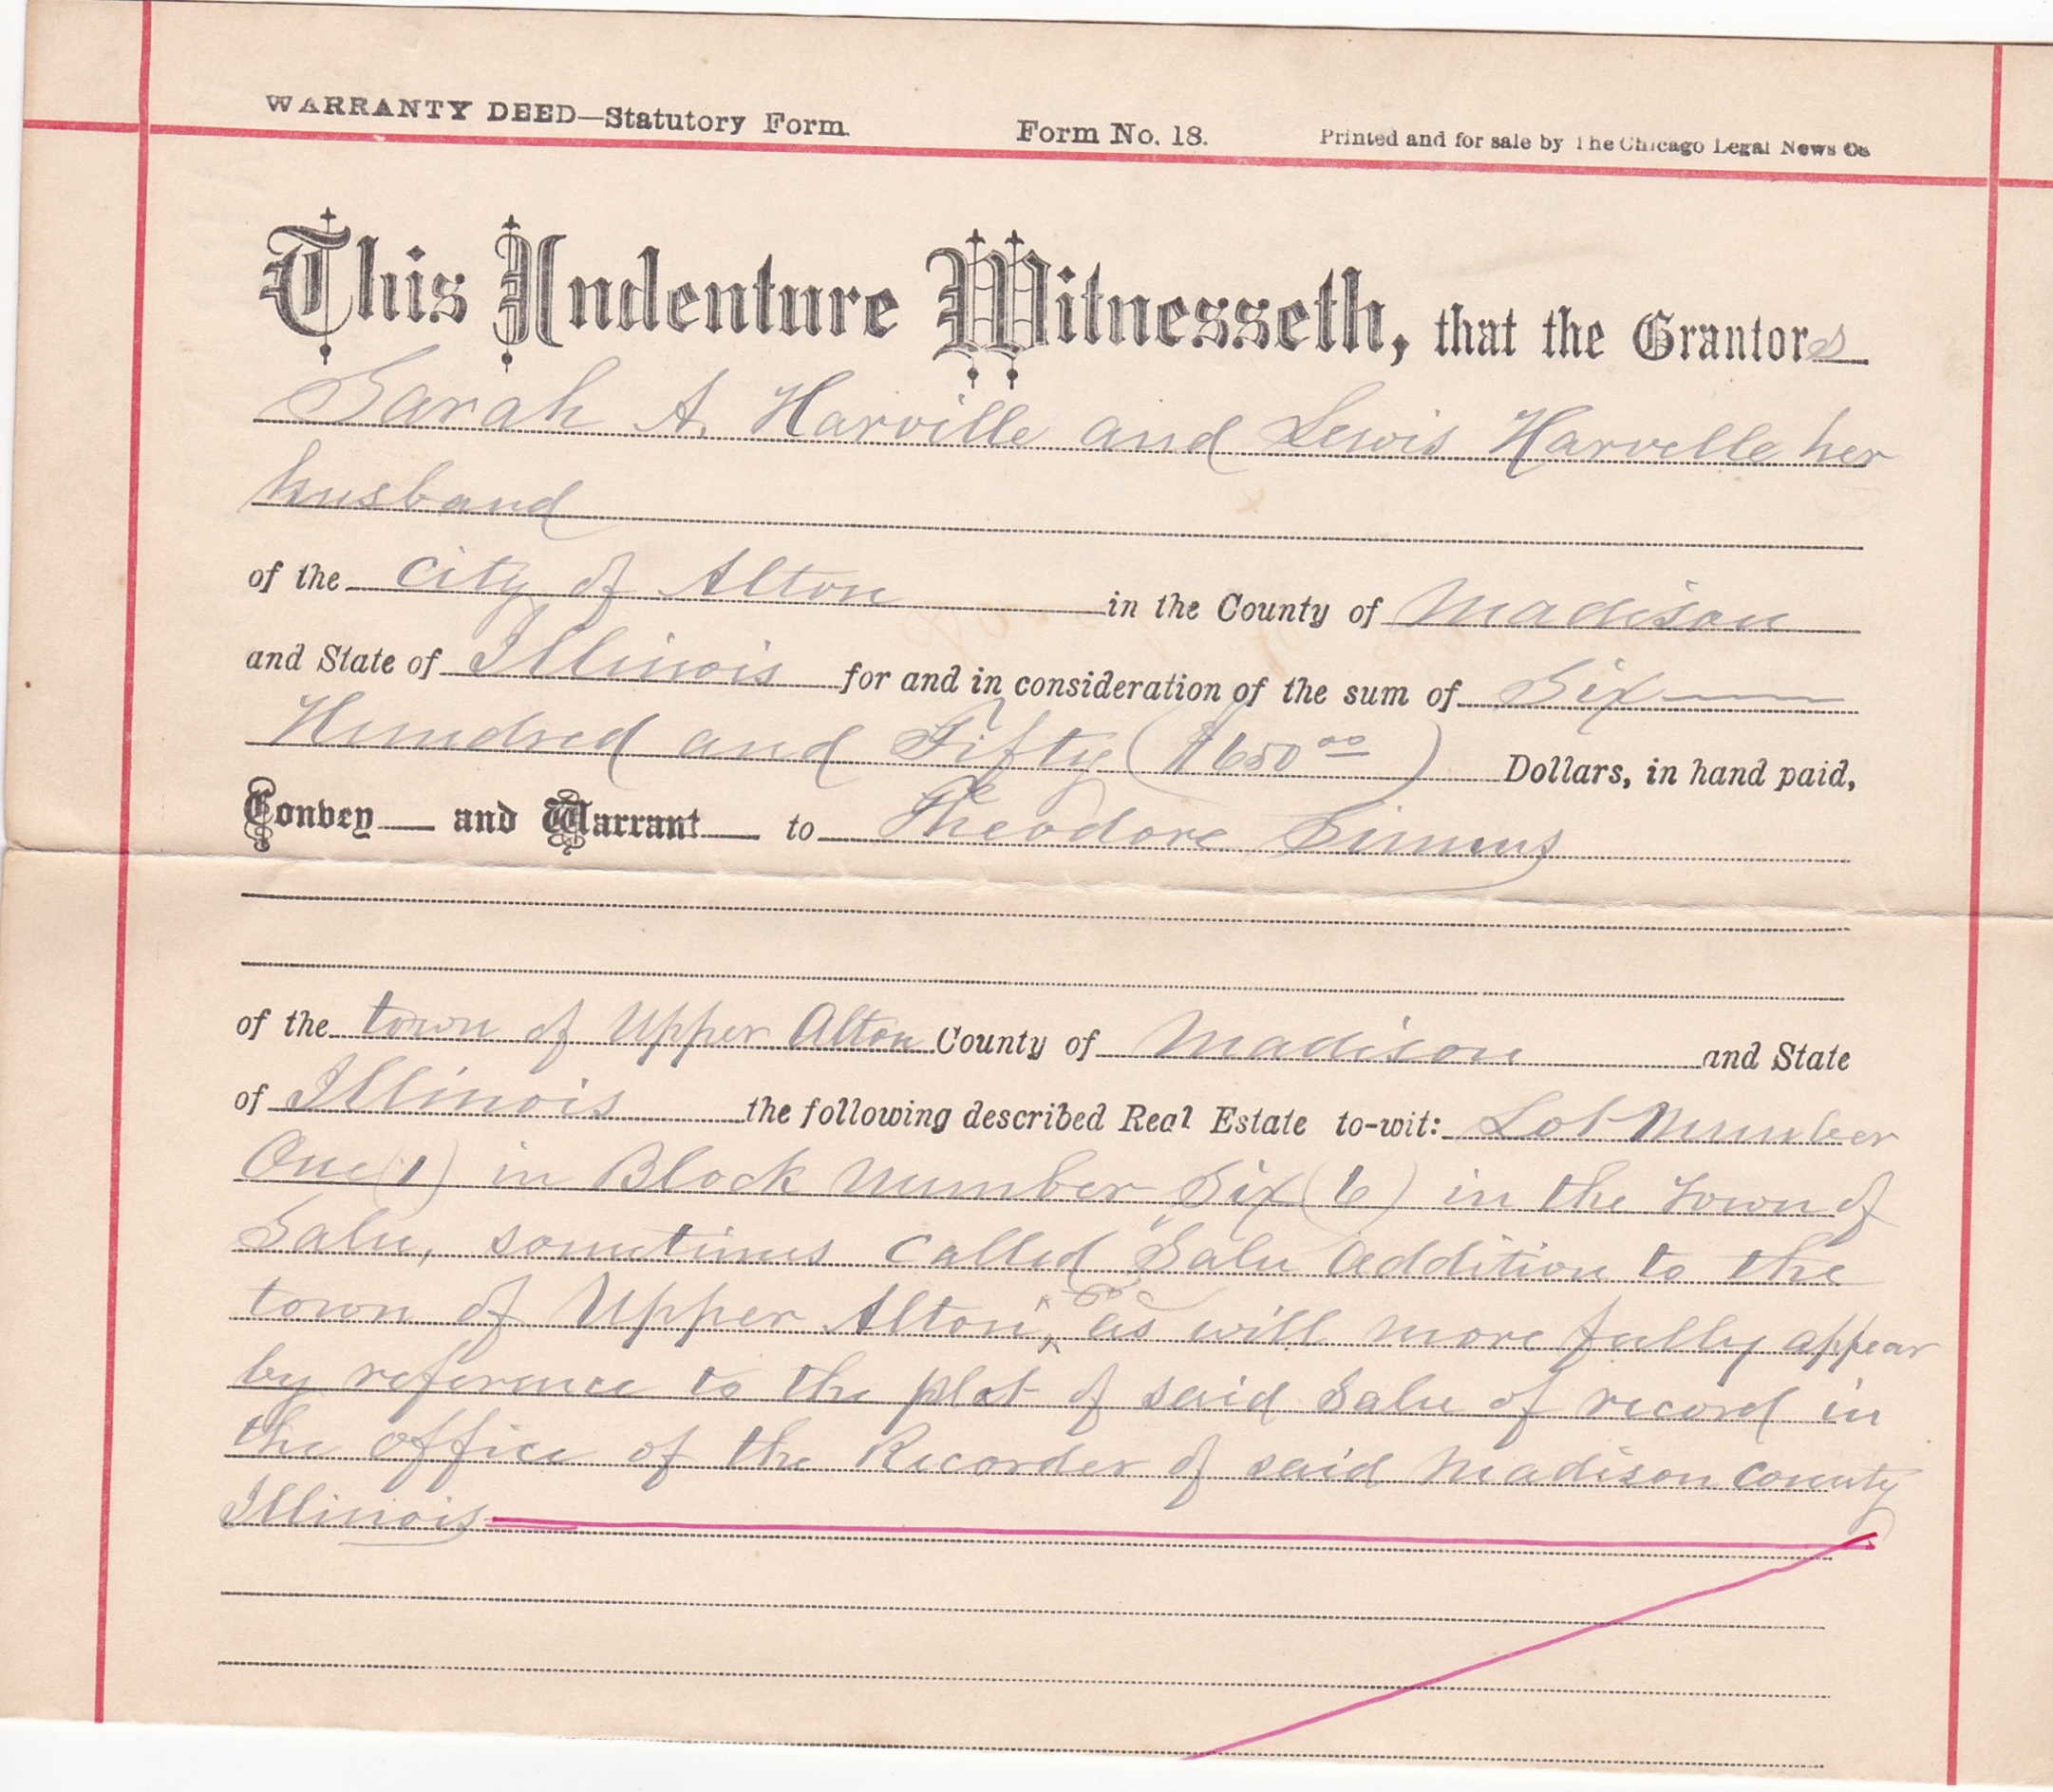 WARRANTY DEED—Statutory Form. Form No. 18. Printed and for sale by The Chicago Legal News Co
This Indenture Witnesseth, that the Grantors
Sarah A. Harville and Lewis Harvelle her
husband
of the City of Alton in the County of Madison
and State of Illinois for and in consideration of the sum of Six
Hundred and Fifty ($650 00) Dollars, in hand paid,
Convey and Warrant to Theodore Simms
of the town of Upper Alton County of Madison and State
of Illinois the following described Real Estate to-wit: Lot Number
One (1) in Block Number Six (6) in the Town of
Salu, sometimes called "Salu Addition to the
town of Upper Alton", as will more fully appear
by reference to the plat of said Salu of record in
the office of the Recorder of said Madison County
Illinois